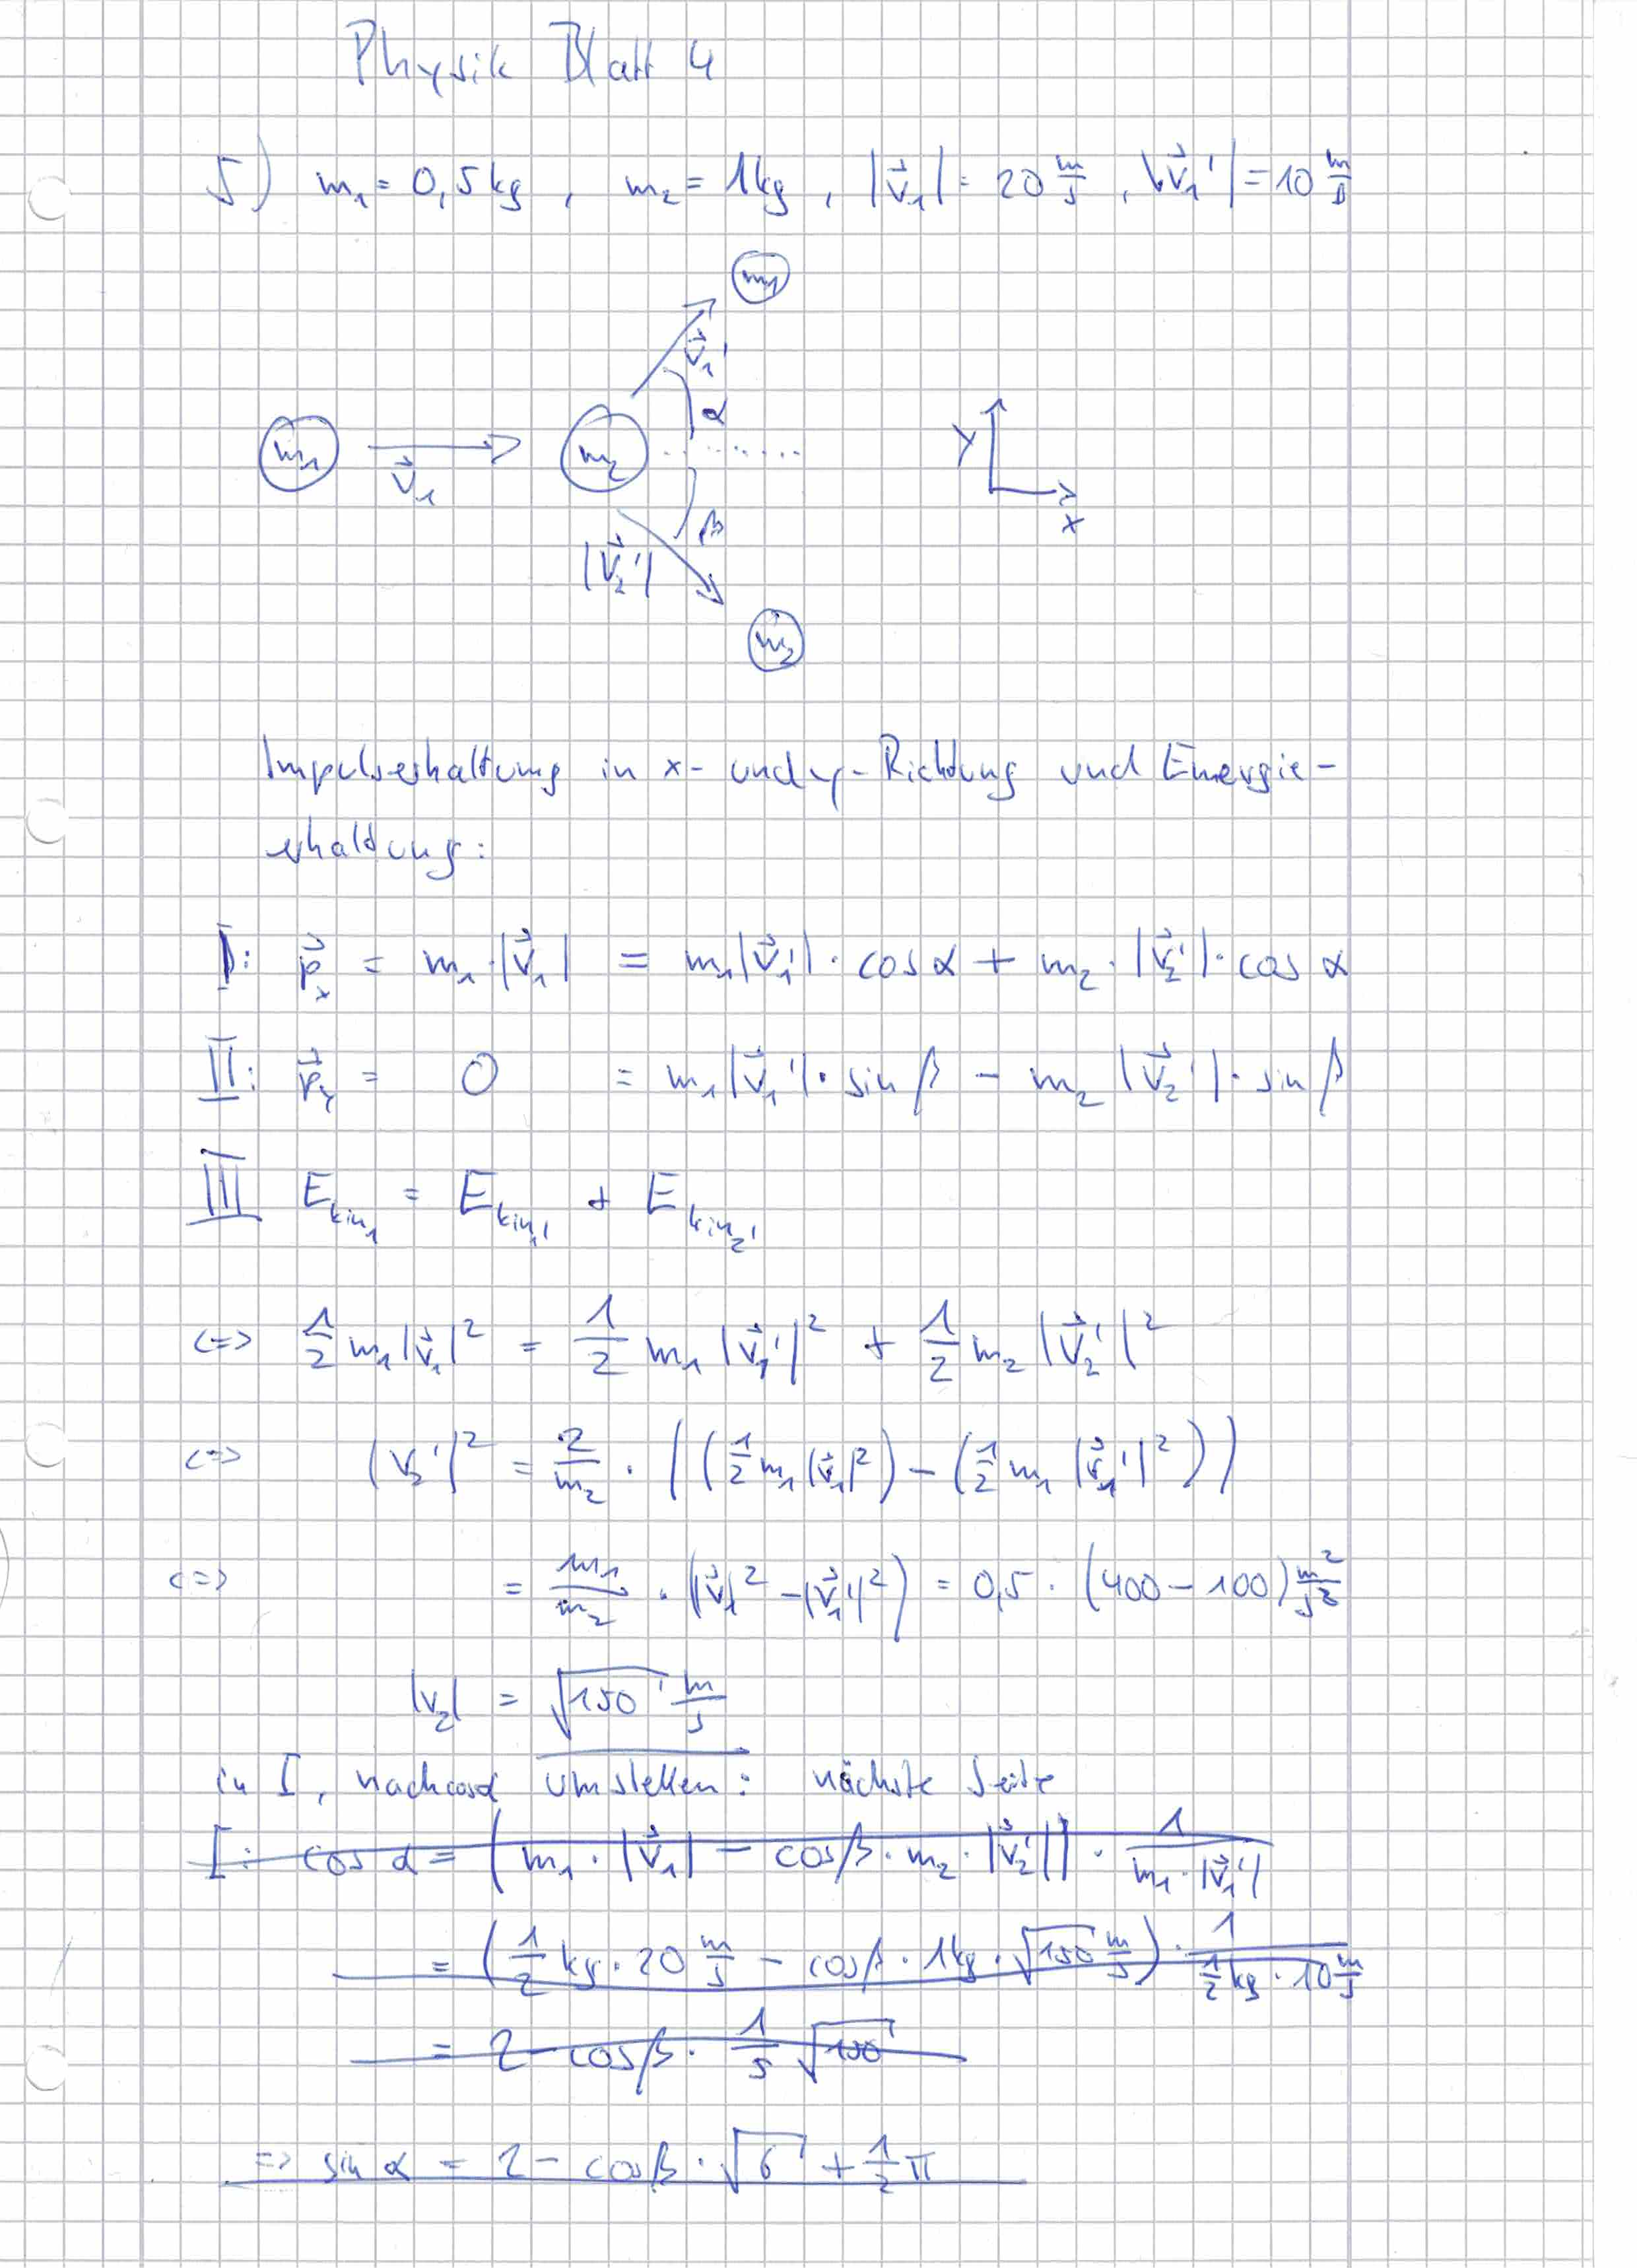 Physik Blatt 4
5) m₁ = 0,5 kg , m₂ = 1 kg , |v⃗₁| = 20 m/s , |v⃗₁'| = 10 m/s
m₁
v⃗₁'
α
m₁ v⃗₁ m₂
y
x
β
|v⃗₂'|
m₂
Impulserhaltung in x- und y-Richtung und Energie-
erhaltung:
I: p⃗ₓ = m₁·|v⃗₁| = m₁|v⃗₁'|·cos α + m₂·|v⃗₂'|·cos α
II: p⃗_y = 0 = m₁|v⃗₁'|·sin β − m₂|v⃗₂'|·sin β
III E_kin₁ = E_kin₁' + E_kin₂'
<=> 1/2 m₁|v⃗₁|² = 1/2 m₁|v⃗₁'|² + 1/2 m₂|v⃗₂'|²
<=> |v₂'|² = 2/m₂ · ((1/2 m₁|v⃗₁|²) − (1/2 m₁|v⃗₁'|²))
<=> = m₁/m₂ · (|v⃗₁|² − |v⃗₁'|²) = 0,5 · (400 − 100) m²/s²
|v₂| = √150 m/s
in I, nach cos α umstellen: nächste Seite
I: cos α = (m₁·|v⃗₁| − cos β·m₂·|v⃗₂'|) · 1/(m₁·|v⃗₁'|)
= (1/2 kg · 20 m/s − cos β · 1kg · √150 m/s) · 1/(1/2 kg · 10 m/s)
= 2 − cos β · 1/5 √150
=> sin α = 2 − cos β · √6 + 1/2 π